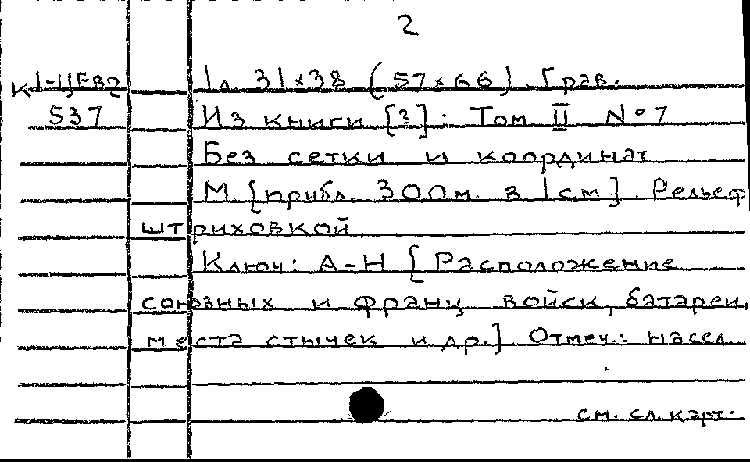 2
К 1-ЦЕв2 1 л. 31×38 (57×66). Грав.
537 Из книги [?]: Том II № 7
Без сетки и координат
М. [прибл. 300м. в 1см]. Рельеф
штриховкой
Ключ: А-Н [Расположение
союзных и франц. войск, батареи,
места стычек и др.] Отмеч.: насел.
см. сл. карт.